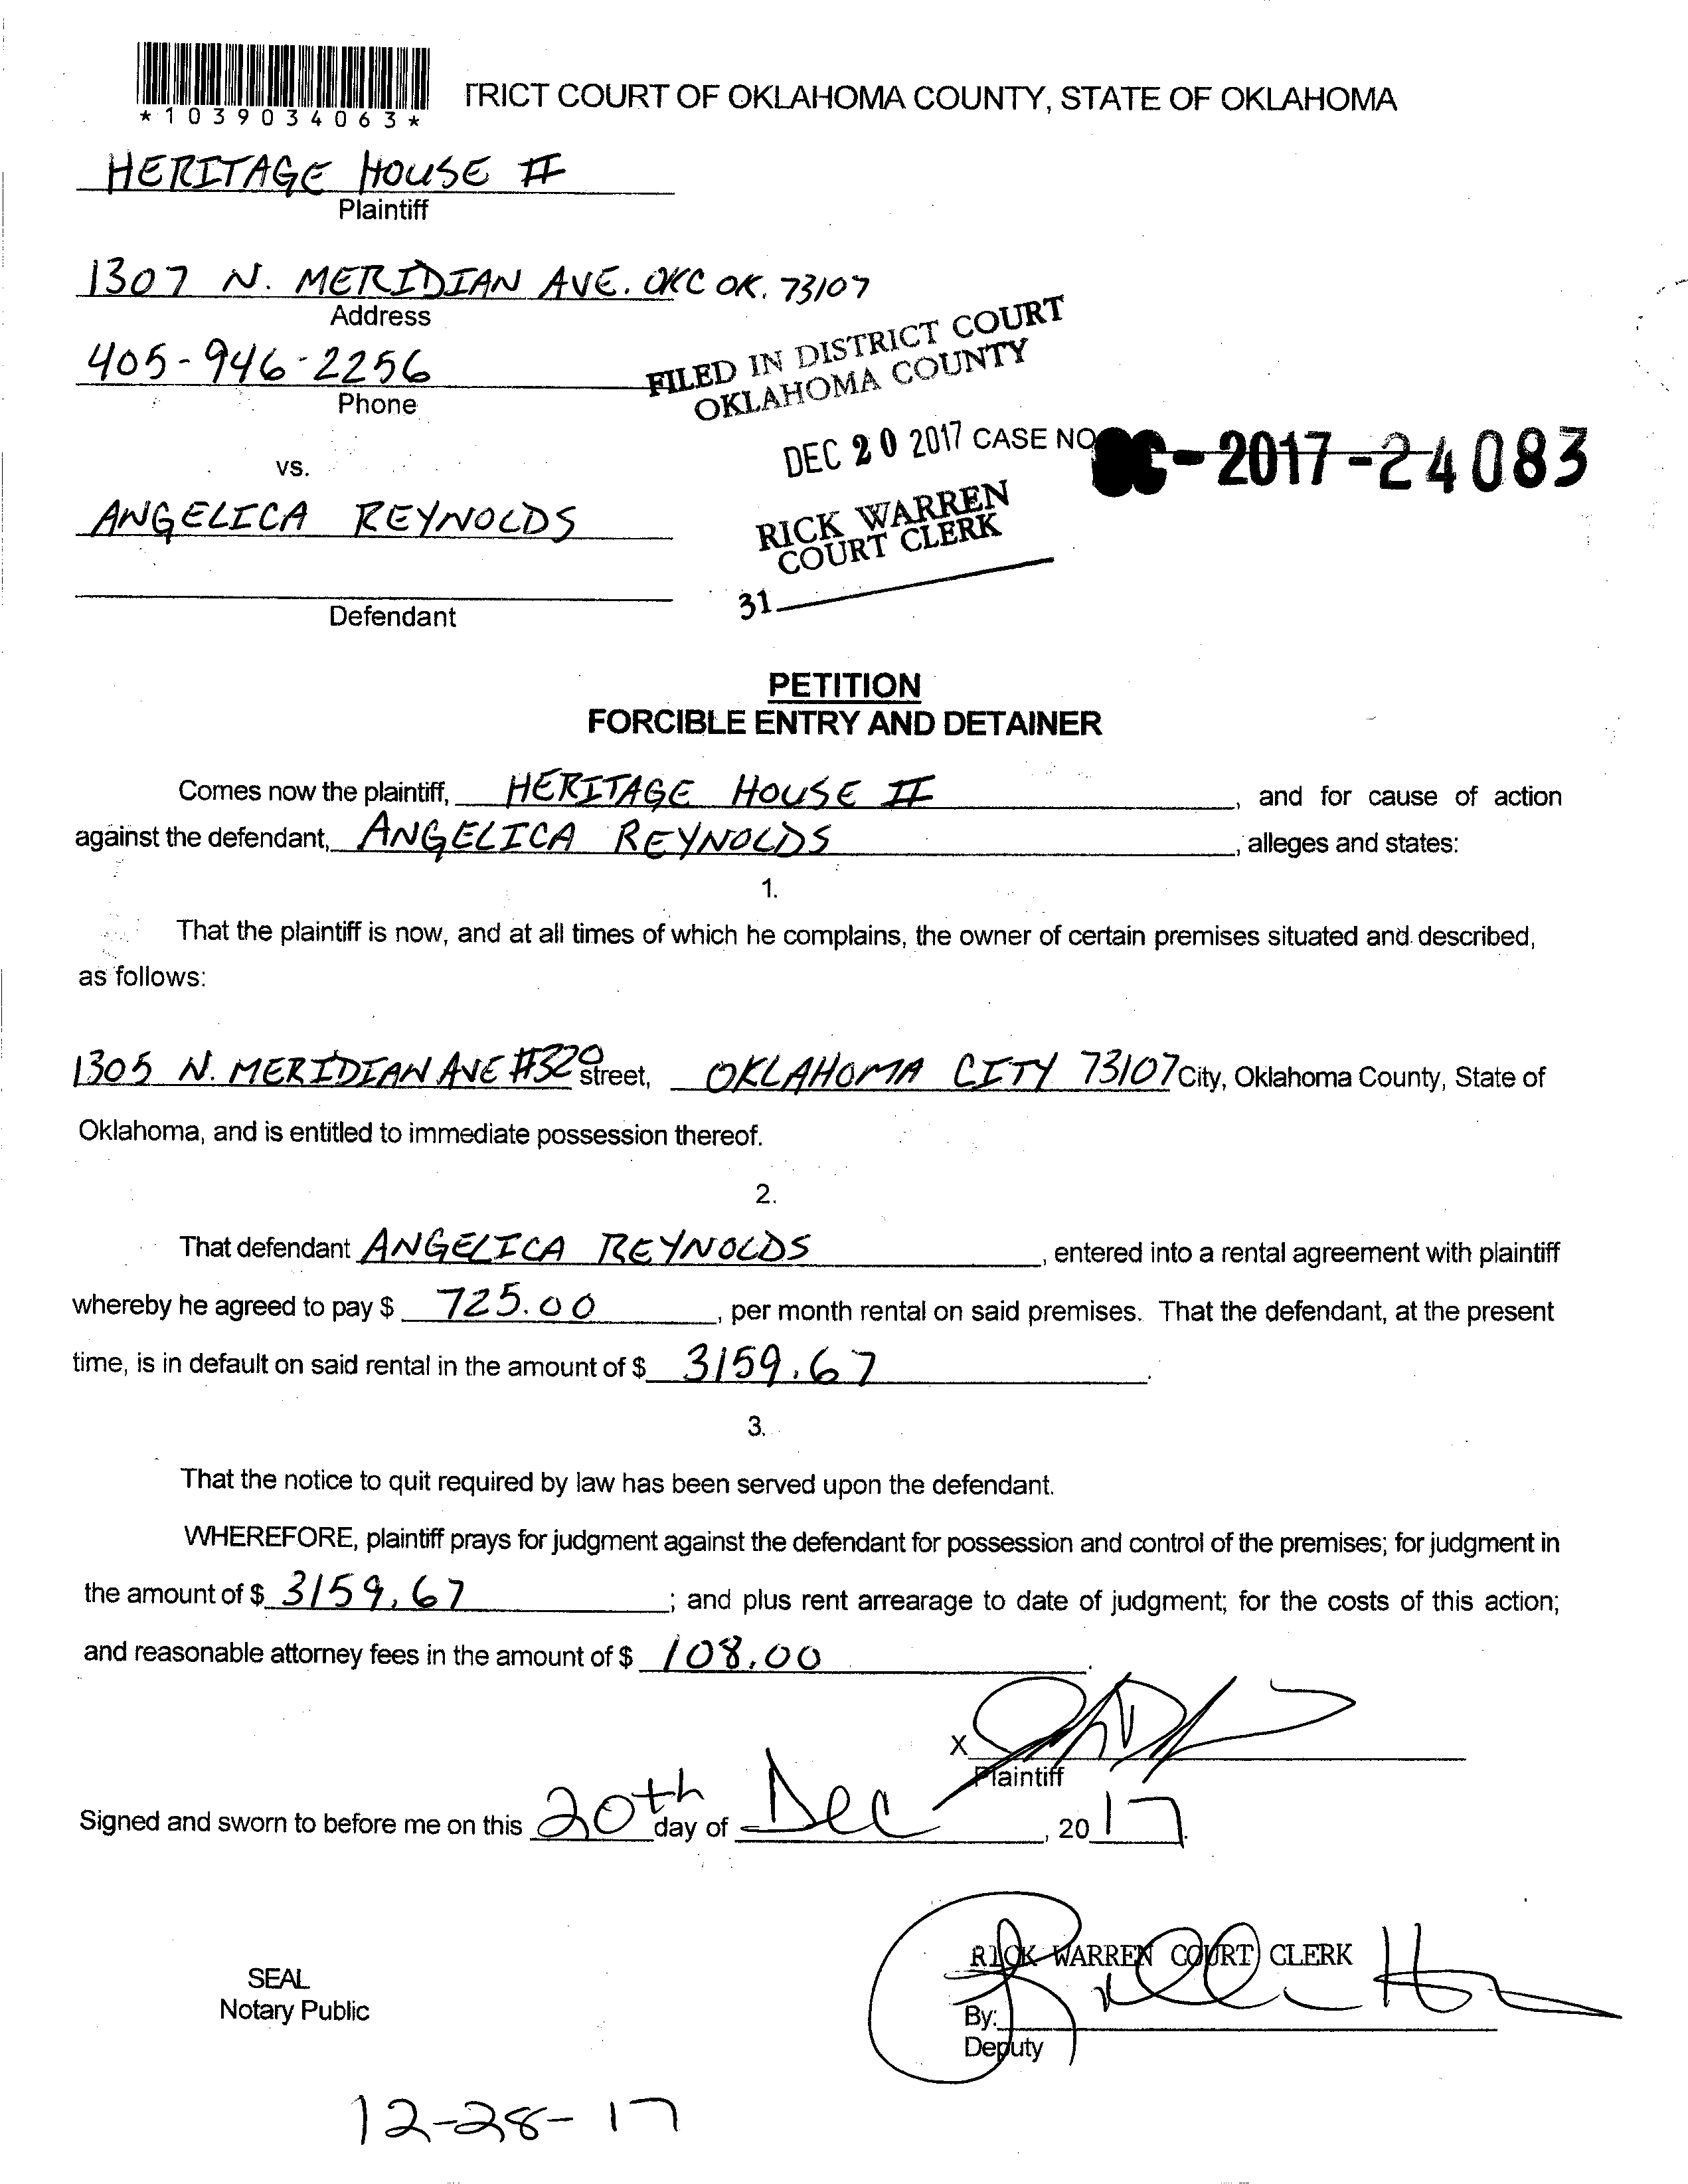 *1039034063*
TRICT COURT OF OKLAHOMA COUNTY, STATE OF OKLAHOMA
HERITAGE HOUSE II
Plaintiff
1307 N. MERIDIAN AVE. OKC OK. 73107
Address
405-946-2256
Phone
FILED IN DISTRICT COURT
OKLAHOMA COUNTY
DEC 20 2017
CASE NO
-2017-24083
vs.
ANGELICA REYNOLDS
RICK WARREN
COURT CLERK
31
Defendant
PETITION
FORCIBLE ENTRY AND DETAINER
Comes now the plaintiff, HERITAGE HOUSE II, and for cause of action
against the defendant, ANGELICA REYNOLDS, alleges and states:
1.
That the plaintiff is now, and at all times of which he complains, the owner of certain premises situated and described,
as follows:
1305 N. MERIDIAN AVE #320 street, OKLAHOMA CITY 73107 City, Oklahoma County, State of
Oklahoma, and is entitled to immediate possession thereof.
2.
That defendant ANGELICA REYNOLDS, entered into a rental agreement with plaintiff
whereby he agreed to pay $ 725.00, per month rental on said premises. That the defendant, at the present
time, is in default on said rental in the amount of $ 3159.67.
3.
That the notice to quit required by law has been served upon the defendant.
WHEREFORE, plaintiff prays for judgment against the defendant for possession and control of the premises; for judgment in
the amount of $ 3159.67; and plus rent arrearage to date of judgment; for the costs of this action;
and reasonable attorney fees in the amount of $ 108.00.
X
Plaintiff
Signed and sworn to before me on this 20th day of Dec, 2017.
RICK WARREN COURT CLERK
SEAL
Notary Public
By:
Deputy
12-28-17